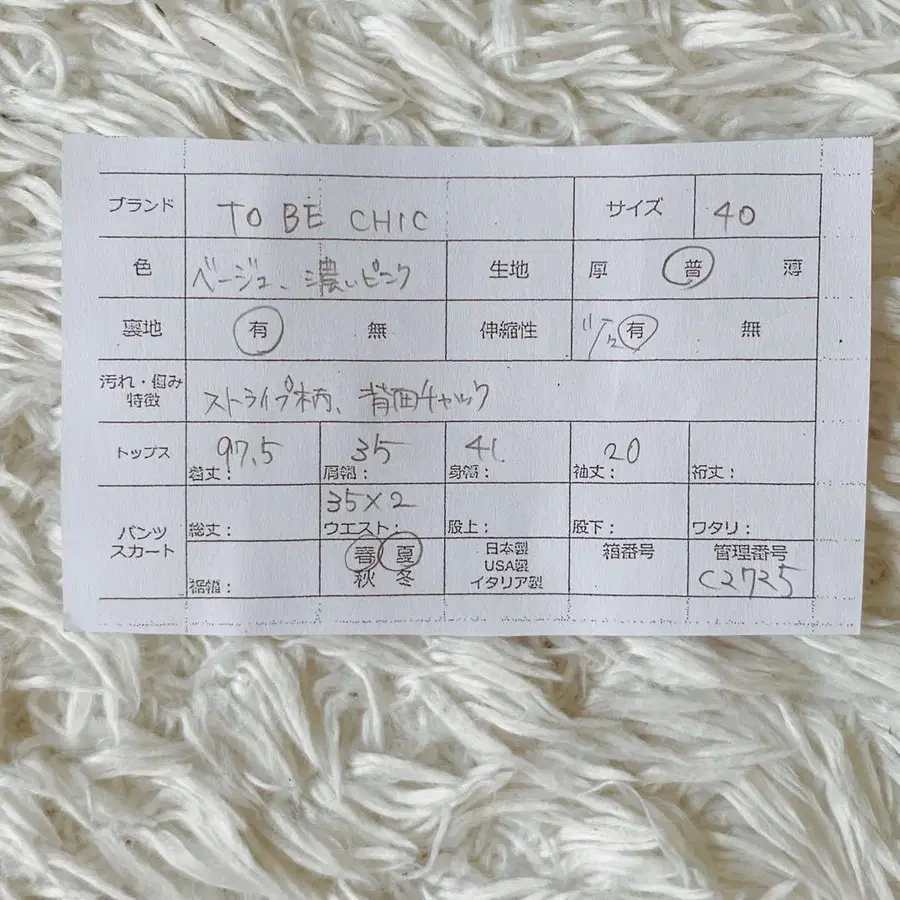 ブランド TO BE CHIC サイズ 40
色 ベージュ、濃いピンク 生地 厚 普 薄
裏地 有 無 伸縮性 有 無
汚れ・傷み
特徴 ストライプ柄、背面チャック
トップス 97.5 35 41. 20
着丈: 肩幅: 身幅: 袖丈: 裄丈:
35×2
パンツ
スカート 総丈: ウエスト: 股上: 股下: ワタリ:
裾幅: 春 夏
秋 冬
日本製
USA製
イタリア製
箱番号
管理番号
C2725